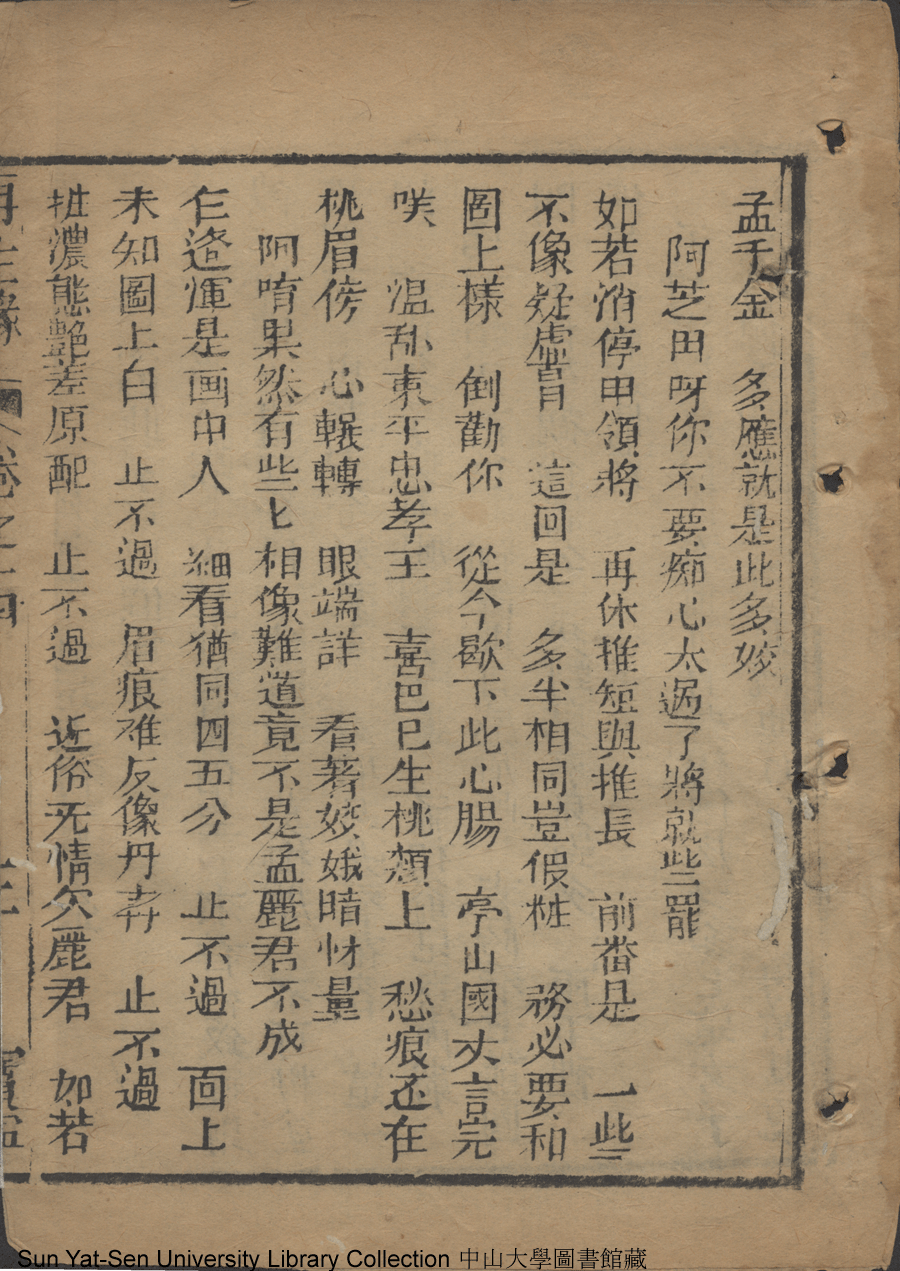 孟千金　多應就是此多姣
阿芝田呀你不要痴心太過了將就些罷
如若消停甲領將　再休推短與推長　前畨是　一些
不像疑虛冒　這回是　多半相同豈假粧　務必要和
圖上樣　倒勸你　從今歇下此心腸　亭山國丈言完
咲　温乱東平忠孝王　喜色已生桃頰上　愁痕还在
桃眉傍　心輾轉　眼端詳　看著姣娥暗忖量
阿唷果然有些匕相像難道竟不是孟麗君不成
是画中人　細看猶同四五分　止不過　面上
未知圖上白　止不過　眉痕难反像丹青　止不過
粧濃態艶差原配　止不過　近俗无情欠麗君　如若
再生緣　卷之十四
Sun Yat-Sen University Library Collection 中山大學圖書館藏